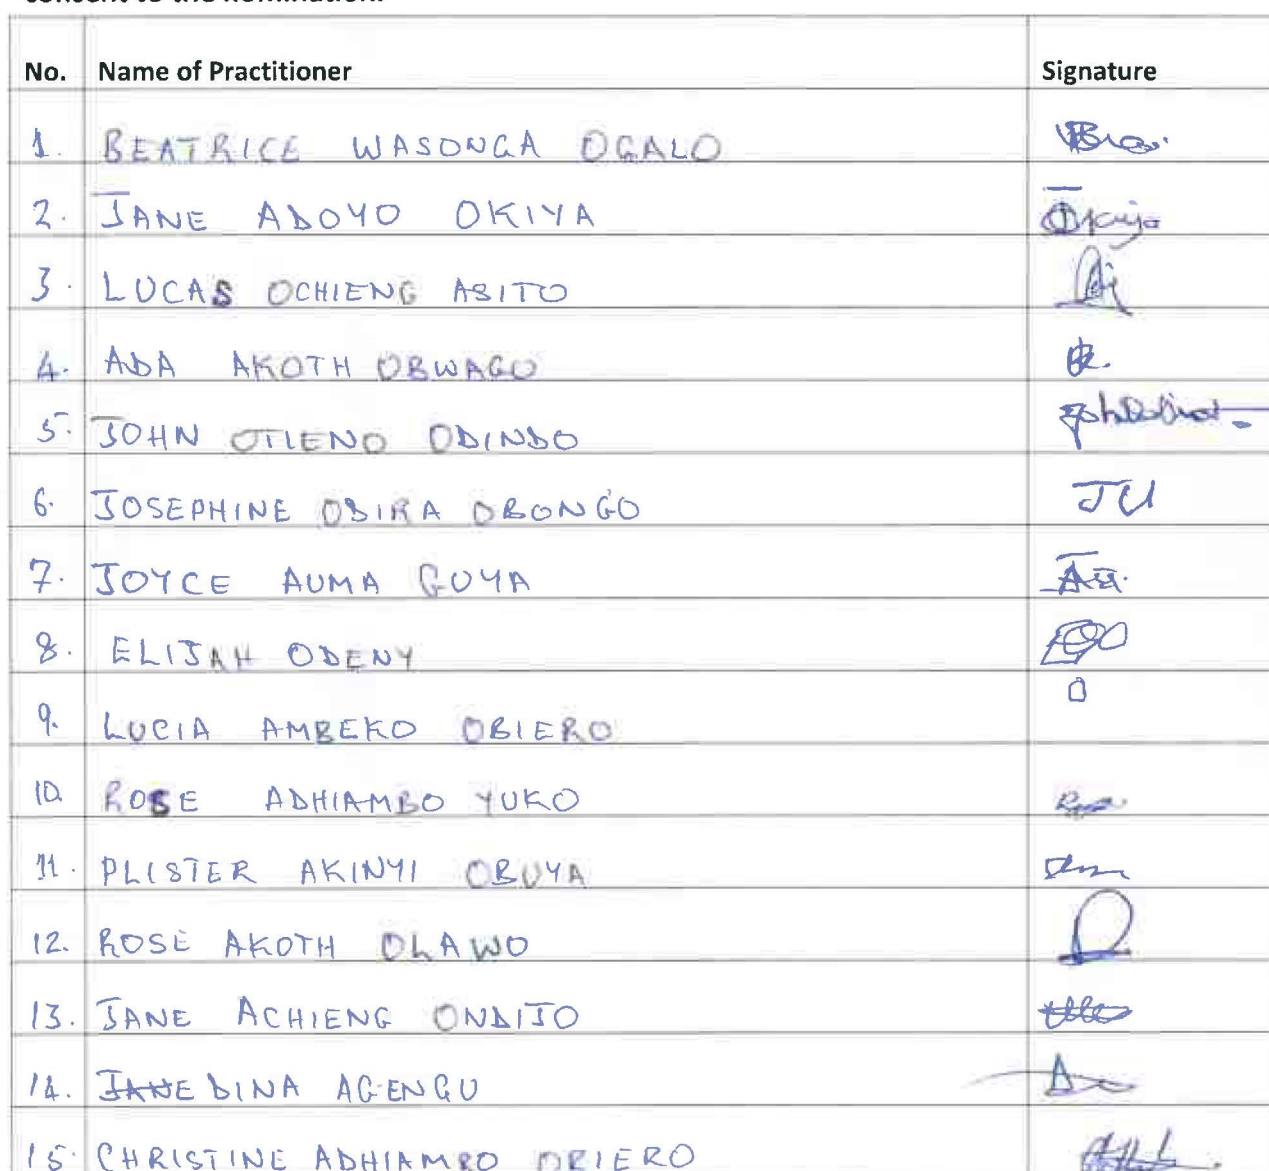 consent to the nomination.
No. Name of Practitioner Signature
1. BEATRICE WASONGA OGALO
2. JANE ADOYO OKIYA Okiya
3. LUCAS OCHIENG ASITO
4. ADA AKOTH OBWAGO
5. JOHN OTIENO ODINDO
6. JOSEPHINE OBIRA OBONGO JU
7. JOYCE AUMA GUYA
8. ELIJAH ODENY
9. LUCIA AMBEKO OBIERO
10. ROSE ADHIAMBO YUKO
11. PLISTER AKINYI OBUYA
12. ROSE AKOTH OLAWO
13. JANE ACHIENG ONDIJO
14. JANE DINA AGENGU
15. CHRISTINE ADHIAMBO OBIERO